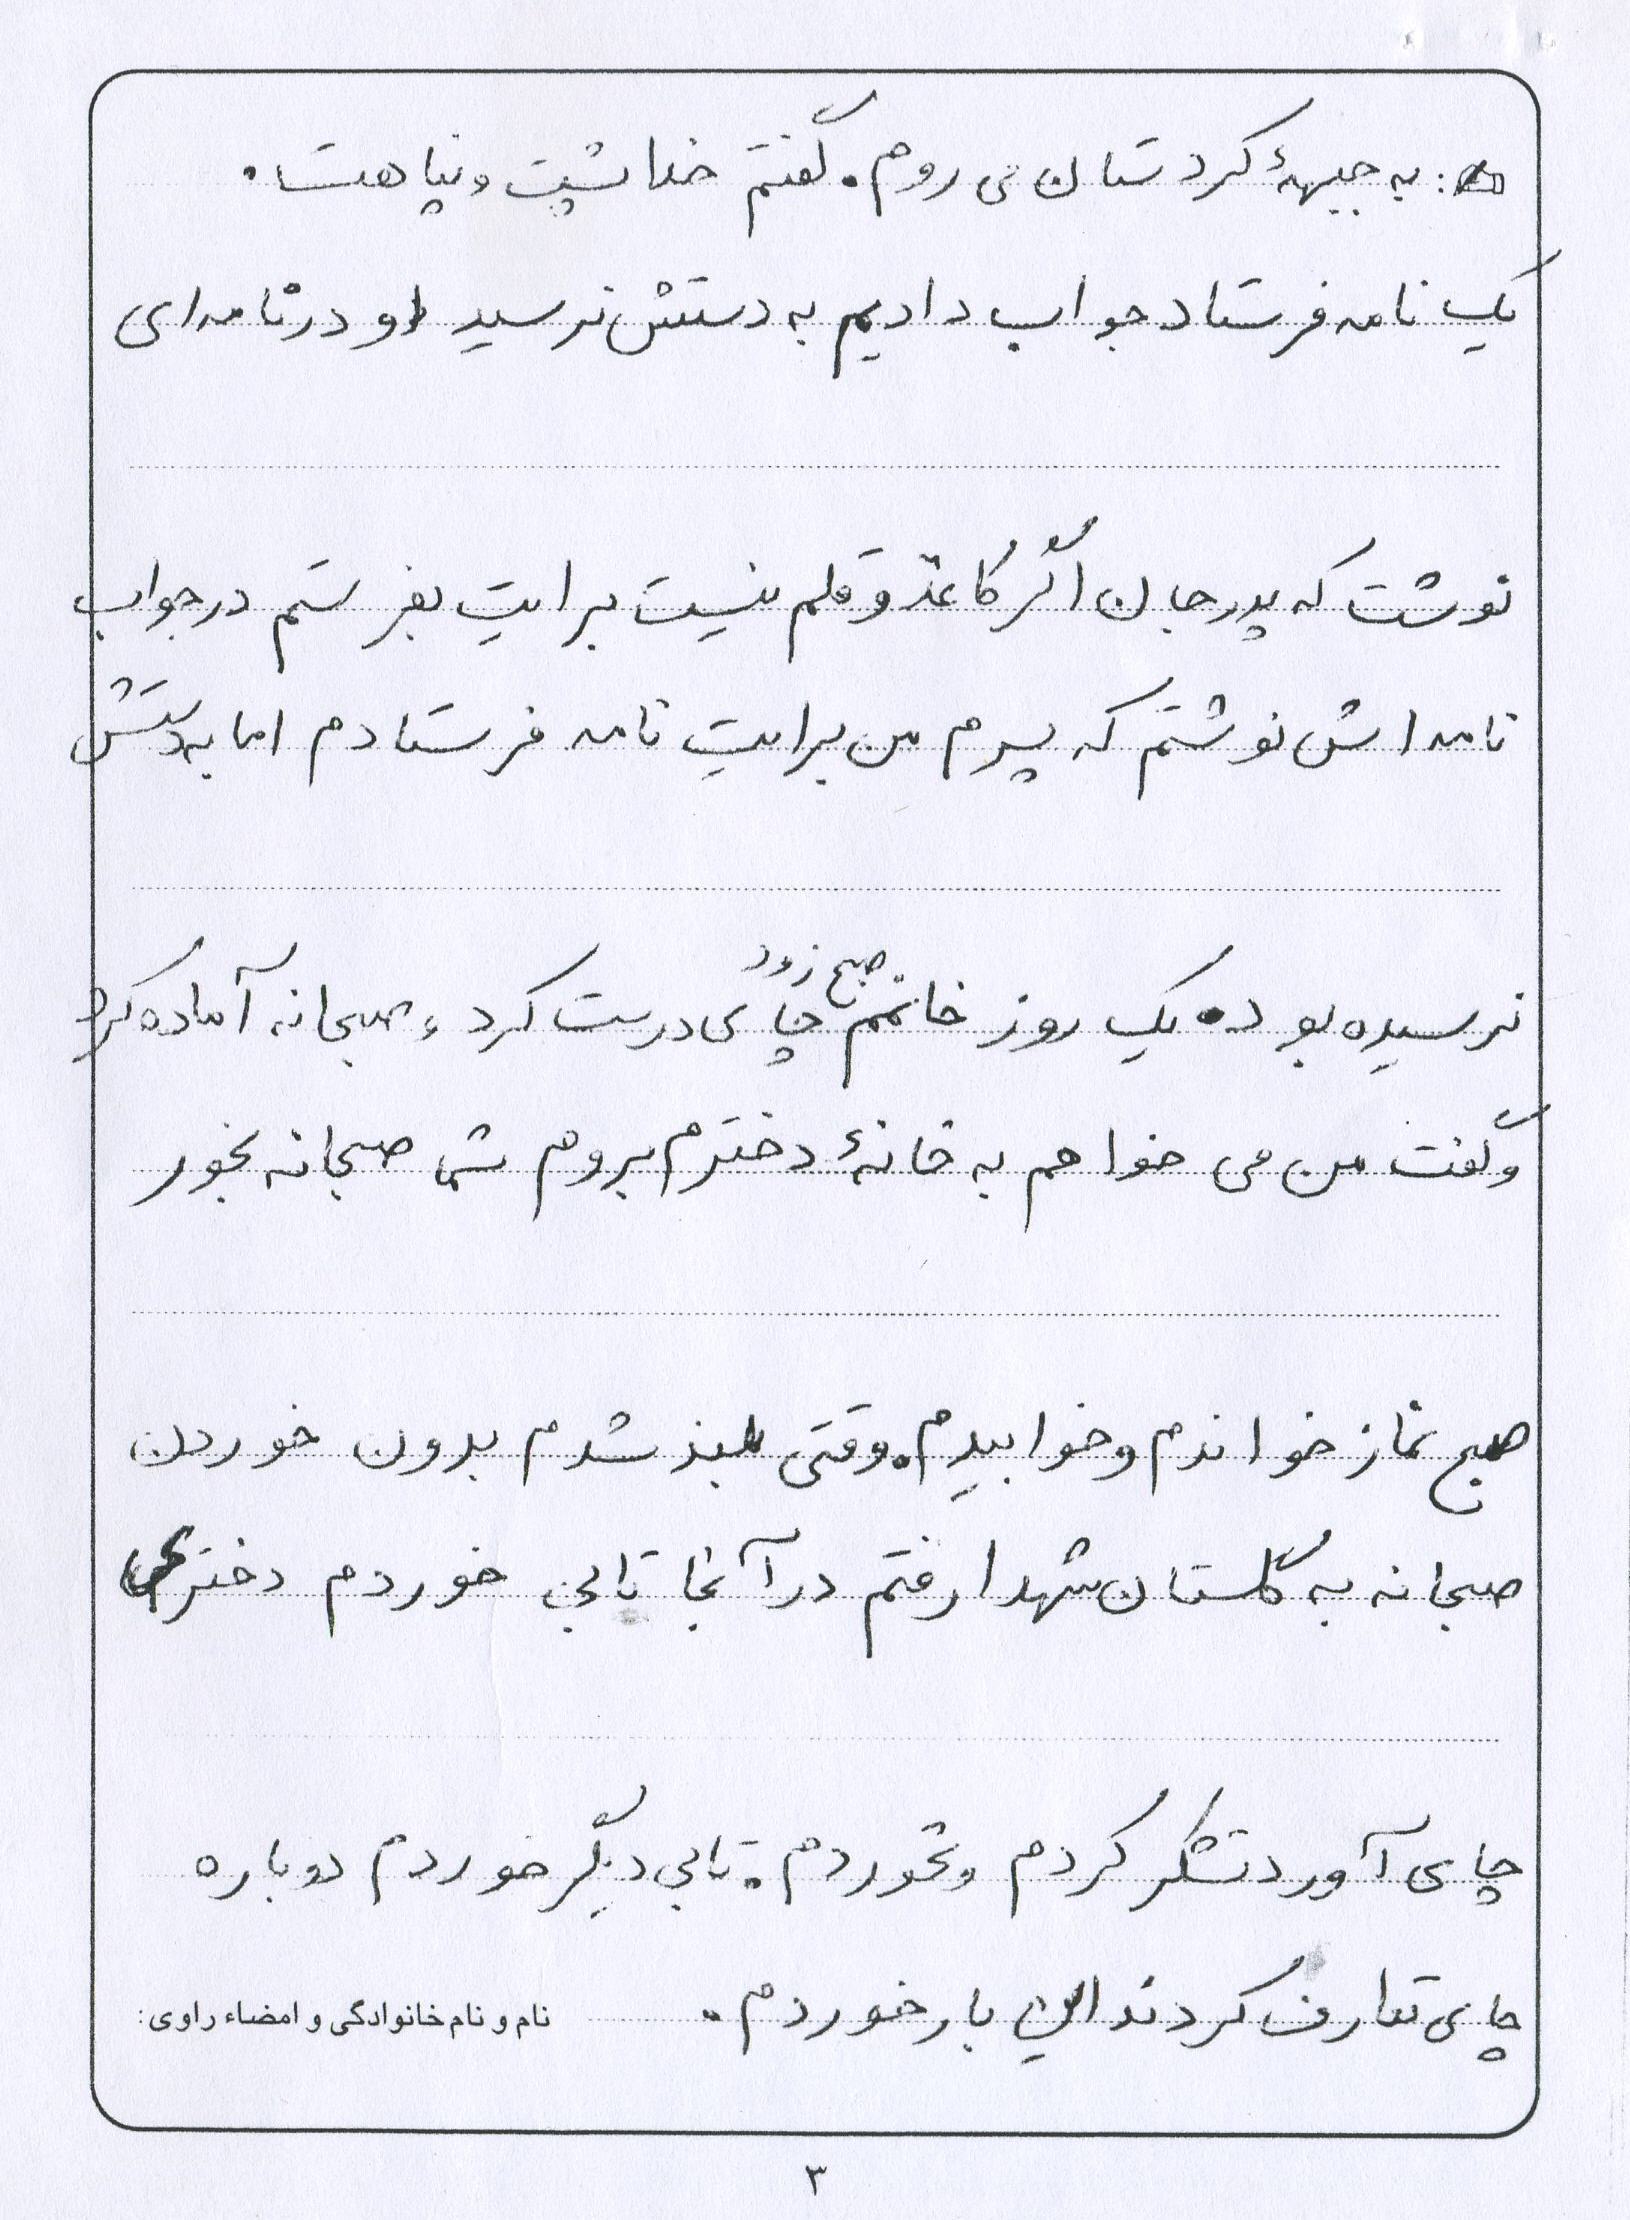 : به جبههٔ کردستان می روم. گفتم خدا پشت و پناهت.
یک نامه فرستاد جواب دادیم به دستش نرسید او در نامه ای
نوشت که پدر جان اگر کاغذ و قلم نیست برایت بفرستم در جواب
نامه اش نوشتم که پسرم من برایت نامه فرستادم اما به دستش
صبح زود
نرسیده بود. یک روز خانمم چای درست کرد و صبحانه آماده کرد
و گفت من می خواهم به خانهٔ دخترم بروم شما صبحانه بخور
صبح نماز خواندم و خوابیدم. وقتی بلند شدم بدون خوردن
صبحانه به گلستان شهدا رفتم در آنجا تابی خوردم دختری
چای آورد تشکر کردم و نخوردم. تابی دیگر خوردم دوباره
چای تعارف کردند این بار خوردم.
نام و نام خانوادگی و امضاء راوی:
۳